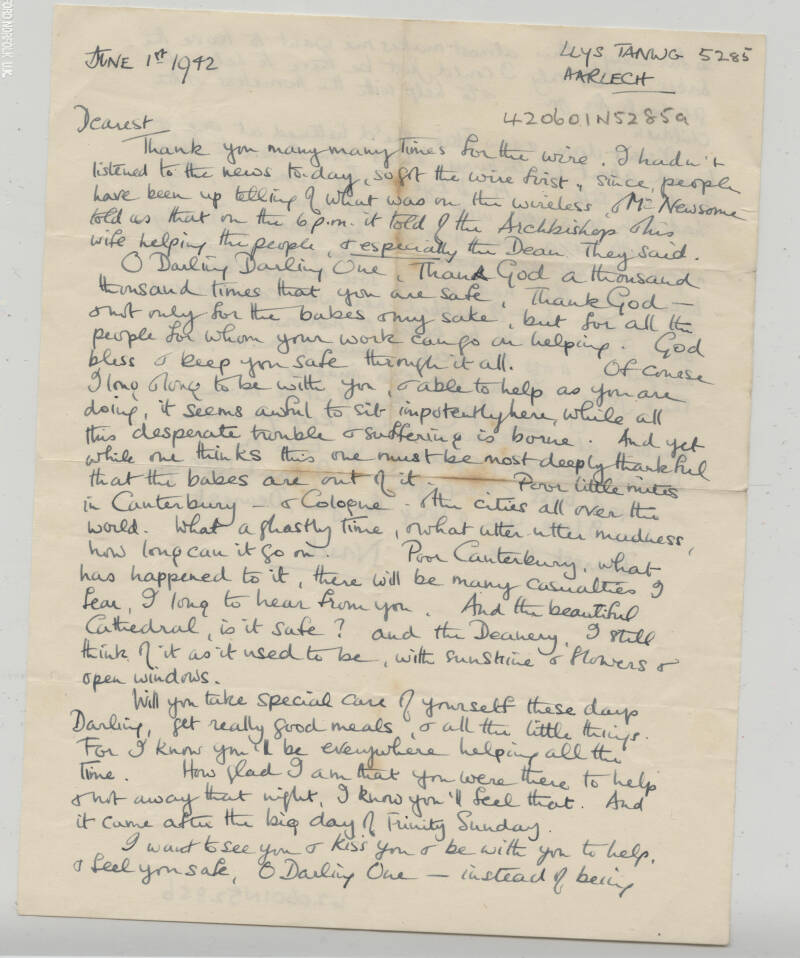 JUNE 1st 1942
LLYS TANWG 5285
AARLECH
420601N5285a
Dearest
Thank you many many times for the wire. I hadn't
listened to the news to-day, so got the wire first, since, people
have been up telling of what was on the wireless, & Mr Newsome
told us that on the 6 p.m. it told of the Archbishop & his
wife helping the people, & especially the Dean They said.
O Darling Darling One, Thank God a thousand
thousand times that you are safe, Thank God —
& not only for the babes & my sake, but for all the
people for whom your work can go on helping. God
bless & keep you safe through it all. Of course
I long & long to be with you, & able to help as you are
doing, it seems awful to sit impotently here, while all
this desperate trouble & suffering is borne. And yet
while one thinks this one must be most deeply thankful
that the babes are out of it. Poor little mites
in Canterbury — & Cologne - & the cities all over the
world. What a ghastly time, & what utter utter madness,
how long can it go on. Poor Canterbury, what
has happened to it, there will be many casualties I
fear, I long to hear from you. And the beautiful
Cathedral, is it safe? and the Deanery, I still
think of it as it used to be, with sunshine & flowers &
open windows.
Will you take special care of yourself these days
Darling, get really good meals, & all the little things.
For I know you'll be everywhere helping all the
time. How glad I am that you were there to help
& not away that night, I know you'll feel that. And
it came after the big day of Trinity Sunday.
I want to see you & kiss you & be with you to help,
& feel you safe, O Darling One — instead of being